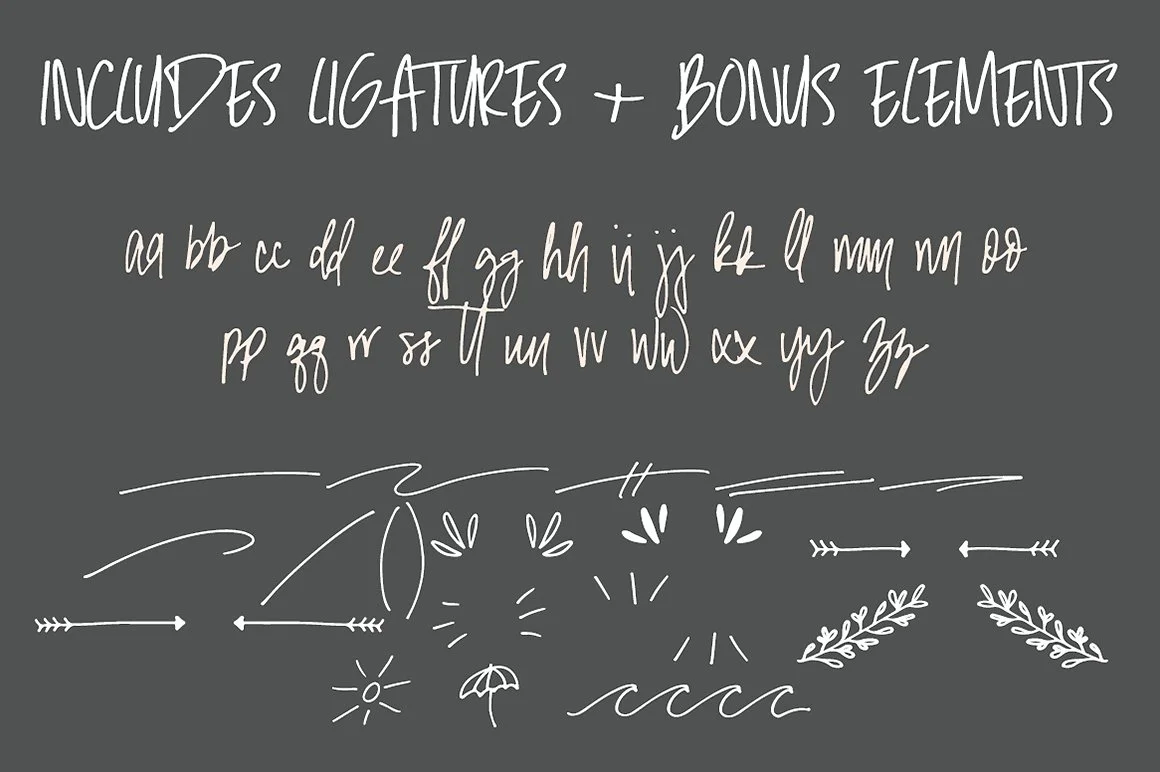 INCLUDES LIGATURES + BONUS ELEMENTS
aa bb cc dd ee ff gg hh ii jj kk ll mm nn oo
pp qq rr ss tt uu vv ww xx yy zz